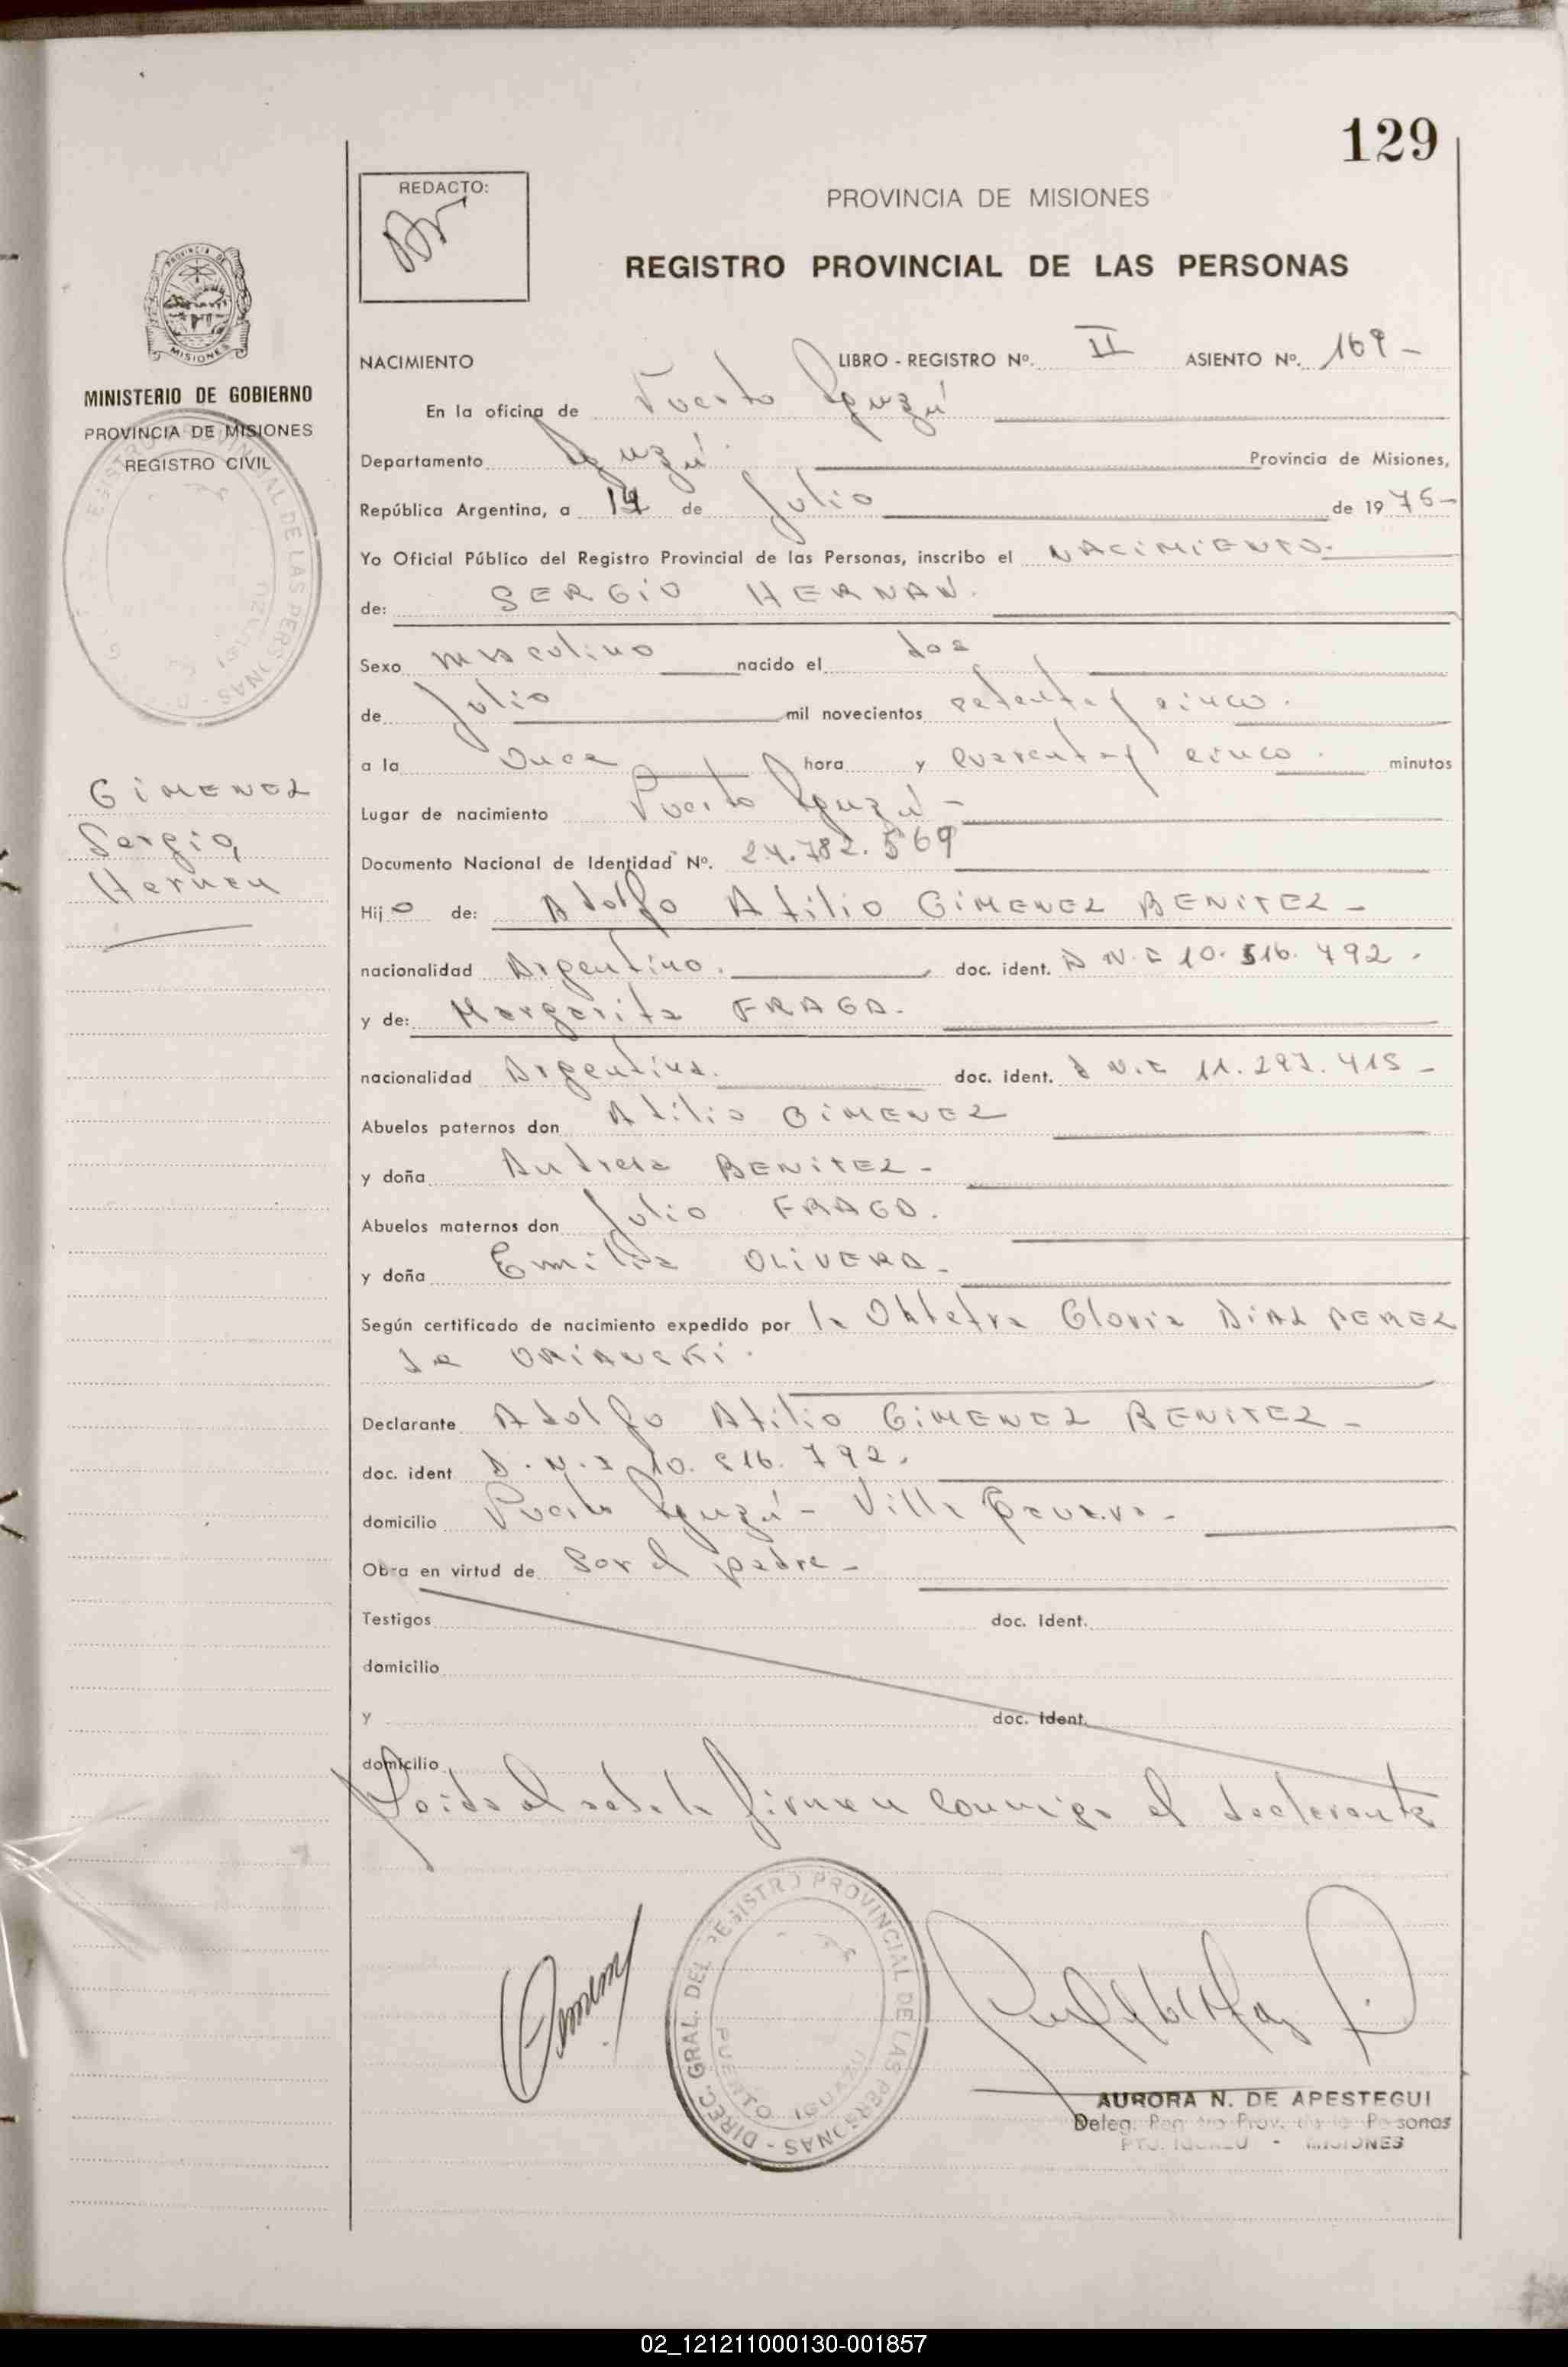 129
REDACTO:
PROVINCIA DE MISIONES
REGISTRO PROVINCIAL DE LAS PERSONAS
NACIMIENTO LIBRO - REGISTRO Nº. II ASIENTO Nº. 169 -
En la oficina de Puerto Iguazú
Departamento Iguazú Provincia de Misiones,
República Argentina, a 14 de Julio de 1975-
Yo Oficial Público del Registro Provincial de las Personas, inscribo el NACIMIENTO.
de: SERGIO HERNAN.
Sexo masculino nacido el dos
de Julio mil novecientos setenta y cinco.
a la Once hora y Cuarenta y cinco. minutos
Lugar de nacimiento Puerto Iguazú -
Documento Nacional de Identidad Nº. 24.782.569
Hijo de: Adolfo Atilio GIMENEZ BENITEZ -
nacionalidad Argentino. doc. ident. D N.I 10.516.792.
y de: Margarita FRAGA.
nacionalidad Argentina. doc. ident. D N.I 11.297.415 -
Abuelos paternos don Atilio GIMENEZ
y doña Andresa BENITEZ -
Abuelos maternos don Julio FRAGA.
y doña Emilia OLIVERA -
Según certificado de nacimiento expedido por la Obtetra Gloria DIAZ PEREZ
de
Declarante Adolfo Atilio GIMENEZ BENITEZ -
doc. ident D.N.I 10.516.792.
domicilio Puerto Iguazú - Villa
Obra en virtud de Ser el padre -
Testigos doc. ident.
domicilio
y doc. ident.
domicilio
Leida el acta la firman conmigo el declarante
DIREC. GRAL. DEL REGISTRO PROVINCIAL DE LAS PERSONAS -
PUERTO IGUAZU
AURORA N. DE APESTEGUI
Deleg. Registro Prov. de las Personas
PTO. IGUAZU - MISIONES
PROVINCIA DE
MISIONES
MINISTERIO DE GOBIERNO
PROVINCIA DE MISIONES
REGISTRO CIVIL
GIMENEZ
Sergio,
Hernan
02_121211000130-001857